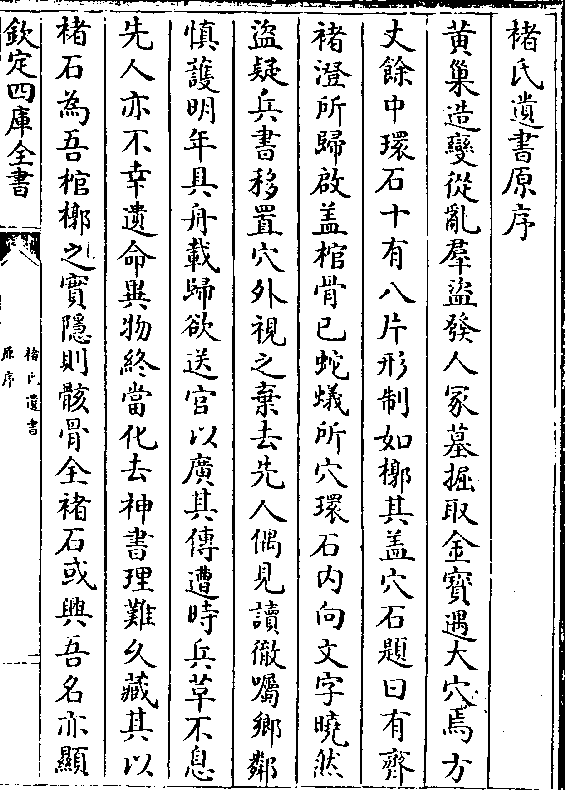 褚氏遺書原序
黃巢造變從亂羣盜發人冢墓掘取金寳遇大穴焉方
丈餘中環石十有八片形制如槨其盖穴石題曰有齊
褚澄所歸啟盖棺骨已蛇蟻所穴環石内向文字曉然
盜疑兵書移置穴外視之棄去先人偶見讀徹囑鄉鄰
慎護明年具舟載歸欲送官以廣其傳遭時兵革不息
先人亦不幸遺命異物終當化去神書理難久藏其以
褚石為吾棺槨之實隠則骸骨全褚石或興吾名亦顯
欽定四庫全書
褚氏遺書
原序
一